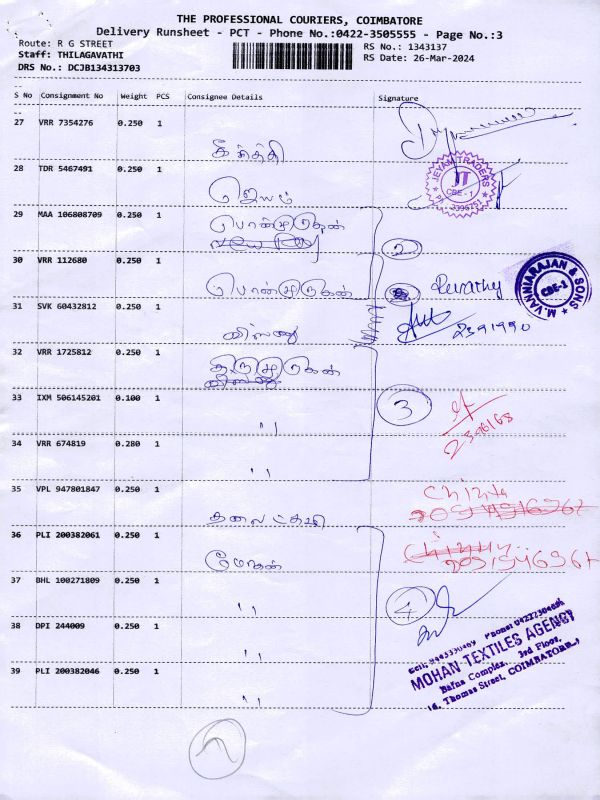 THE PROFESSIONAL COURIERS, COIMBATORE
Delivery Runsheet - PCT - Phone No.:0422-3505555 - Page No.:3
Route: R G STREET
RS No.: 1343137
Staff: THILAGAVATHI
RS Date: 26-Mar-2024
DRS No.: DCJB134313703
S No Consignment No Weight PCS Consignee Details Signature
27 VRR 7354276 0.250 1
கீர்த்தி
28 TDR 5467491 0.250 1
ஜெயம்
JEYAM TRADERS
JT
CBE - 1
29 MAA 106808709 0.250 1
பொன்முருகன்
2
30 VRR 112680 0.250 1
பொன்முருகன்
Revathy
M. VANNIARAJAN & SONS
CBE-1
31 SVK 60432812 0.250 1
2391990
32 VRR 1725812 0.250 1
திருமுருகன்
33 IXM 506145201 0.100 1
"
3
34 VRR 674819 0.280 1
"
35 VPL 947801847 0.250 1
36 PLI 200382061 0.250 1
மோகன்
37 BHL 100271809 0.250 1
"
4
38 DPI 244009 0.250 1
"
MOHAN TEXTILES AGENCY
Bafna Complex, 3rd Floor,
16, Thomas Street, COIMBATORE.
39 PLI 200382046 0.250 1
"